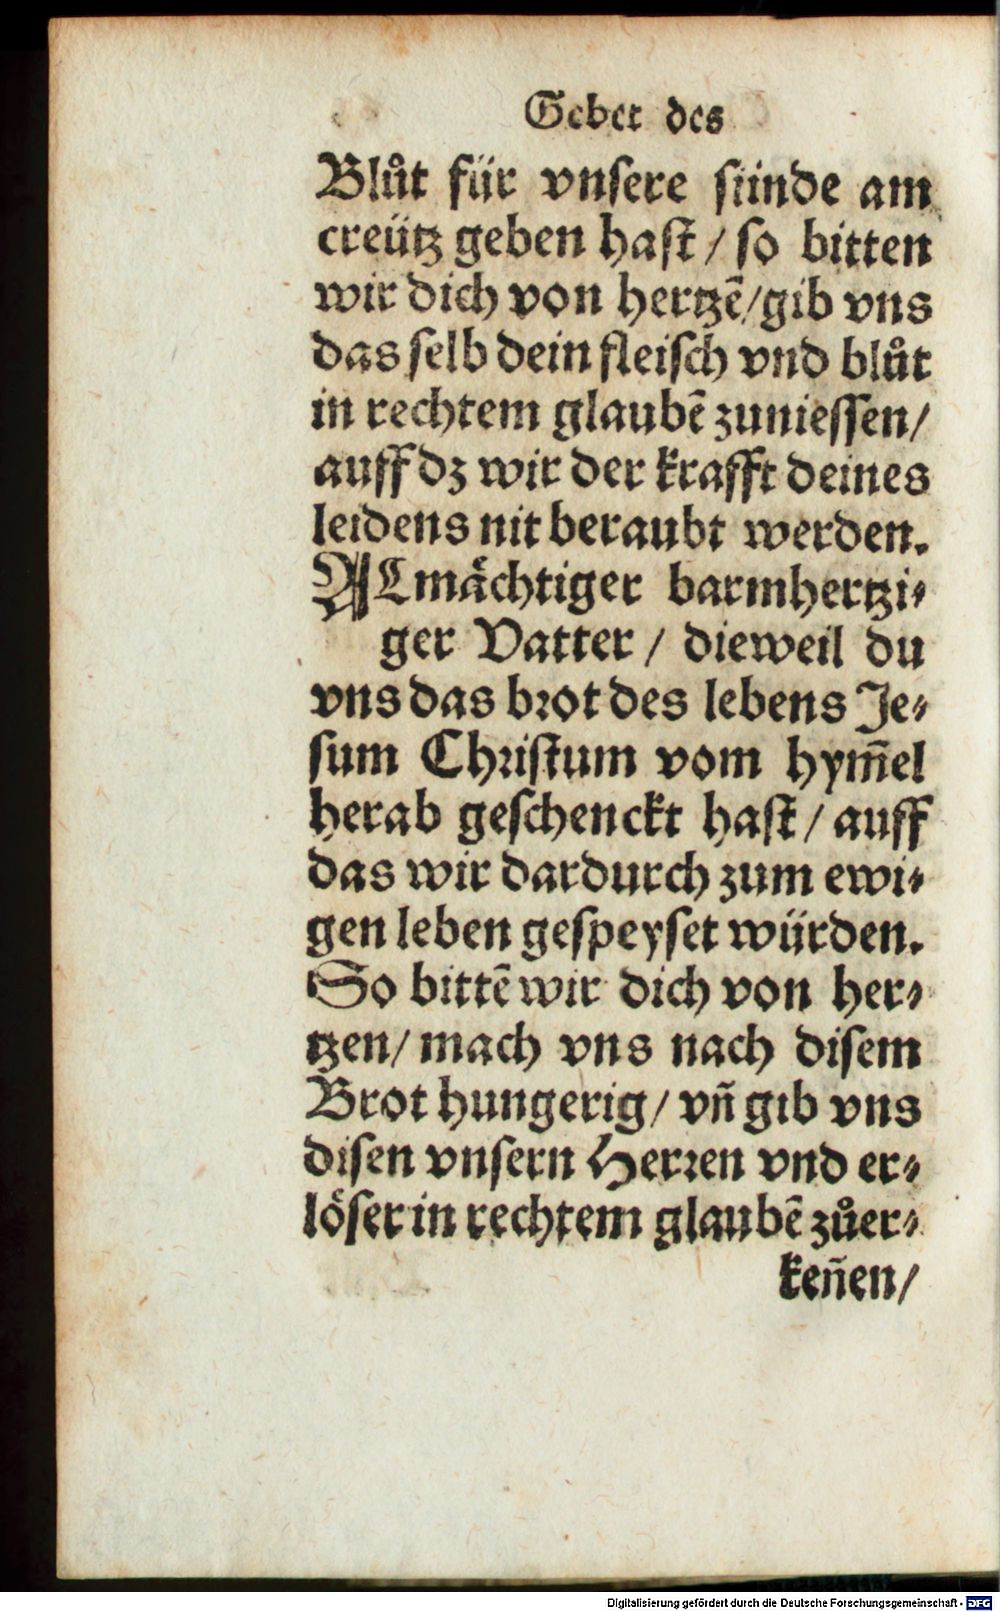 Gebet des
Blůt für vnſere ſünde am
creütz geben haſt / ſo bitten
wir dich von hertzē / gib vns
das ſelb dein fleiſch vnd blůt
in rechtem glaubē zunieſſen /
auff dz wir der krafft deines
leidens nit beraubt werden.
ALmaͤchtiger barmhertzi⸗
ger Vatter / dieweil du
vns das brot des lebens Je⸗
ſum Chriſtum vom hym̄el
herab geſchenckt haſt / auff
das wir dardurch zum ewi⸗
gen leben geſpeyſet würden.
So bittē wir dich von her⸗
tzen / mach vns nach diſem
Brot hungerig / vñ gib vns
diſen vnſern Herren vnd er⸗
löſer in rechtem glaubē zůer⸗
keñen /
Digitalisierung gefördert durch die Deutsche Forschungsgemeinschaft - DFG